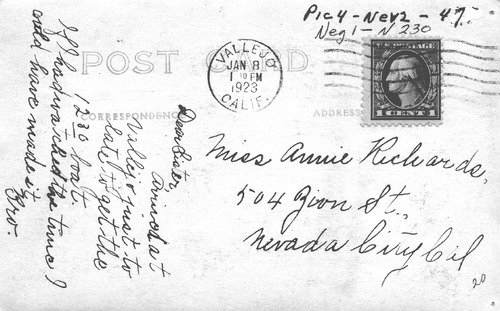 Pic 4 - Nev 2 - 47.
Neg 1 - N 230
POST CARD
VALLEJO
JAN 8
1 30 PM
1923
CALIF.
U.S. POSTAGE
1 CENT 1
CORRESPONDENCE
ADDRESS
Dear Sister,
Arrived at
Vallejo just to
late to get the
1230 boat.
If I had watched the time I
could have made it
Bro.
Miss Annie Richards,
504 Zion St.,
Nevada City Cal
20